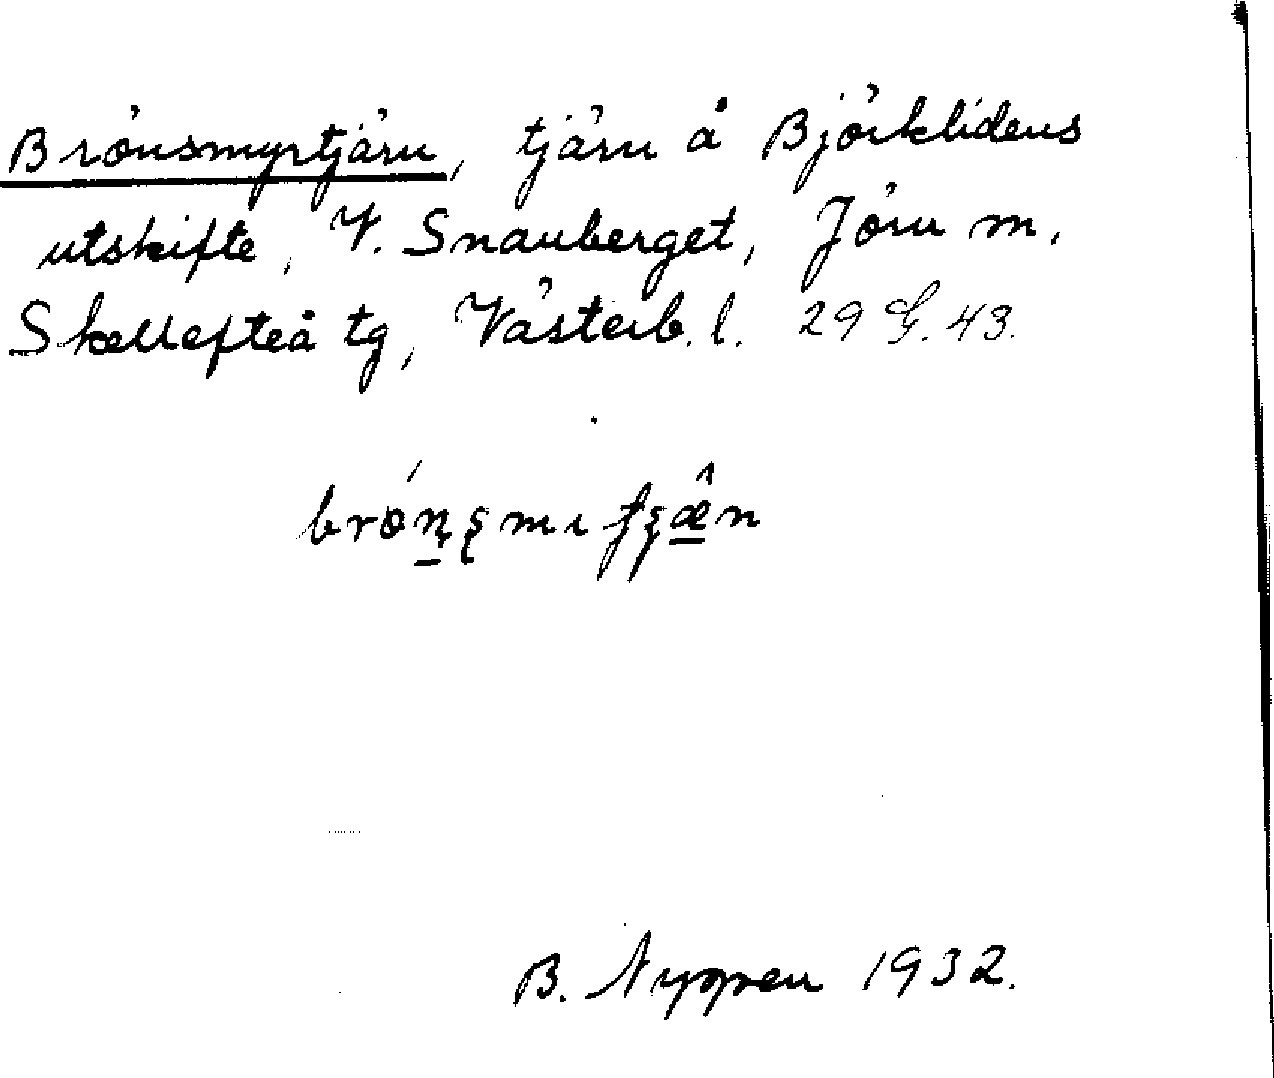 Brönsmyrtjärn, tjärn å Björklidens
utskifte, V. Snauberget, Jörn m.
Skellefteå tg, Västerb. l. 29 G. 43.
B. Nygren 1932.